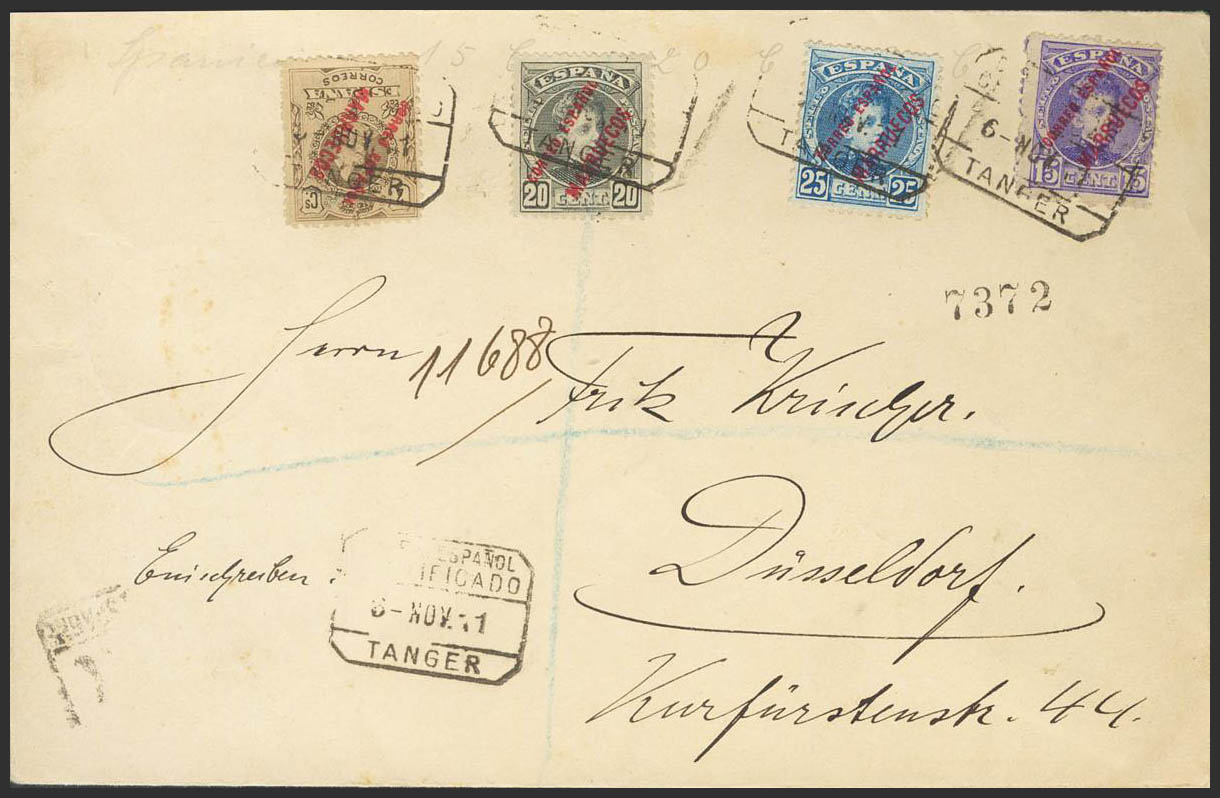 Spanien 15 C 20 C C
CORREOS
ESPAÑA
CORREO ESPAÑOL
MARRUECOS
CS
ESPAÑA
CORREO ESPAÑOL
MARRUECOS
20 CENT 20
ESPAÑA
CORREO ESPAÑOL
MARRUECOS
25 CENT 25
ESPAÑA
CORREO ESPAÑOL
MARRUECOS
15 CENT 15
NOV
NGER
ANGER
TANGER
6-NOV
TANGER
7372
Herrn
11688
Fritz Krischer.
Einschreiben.
Düsseldorf.
ESPAÑOL
IFICADO
6-NOV.11
TANGER
Kurfürstenstr. 44.